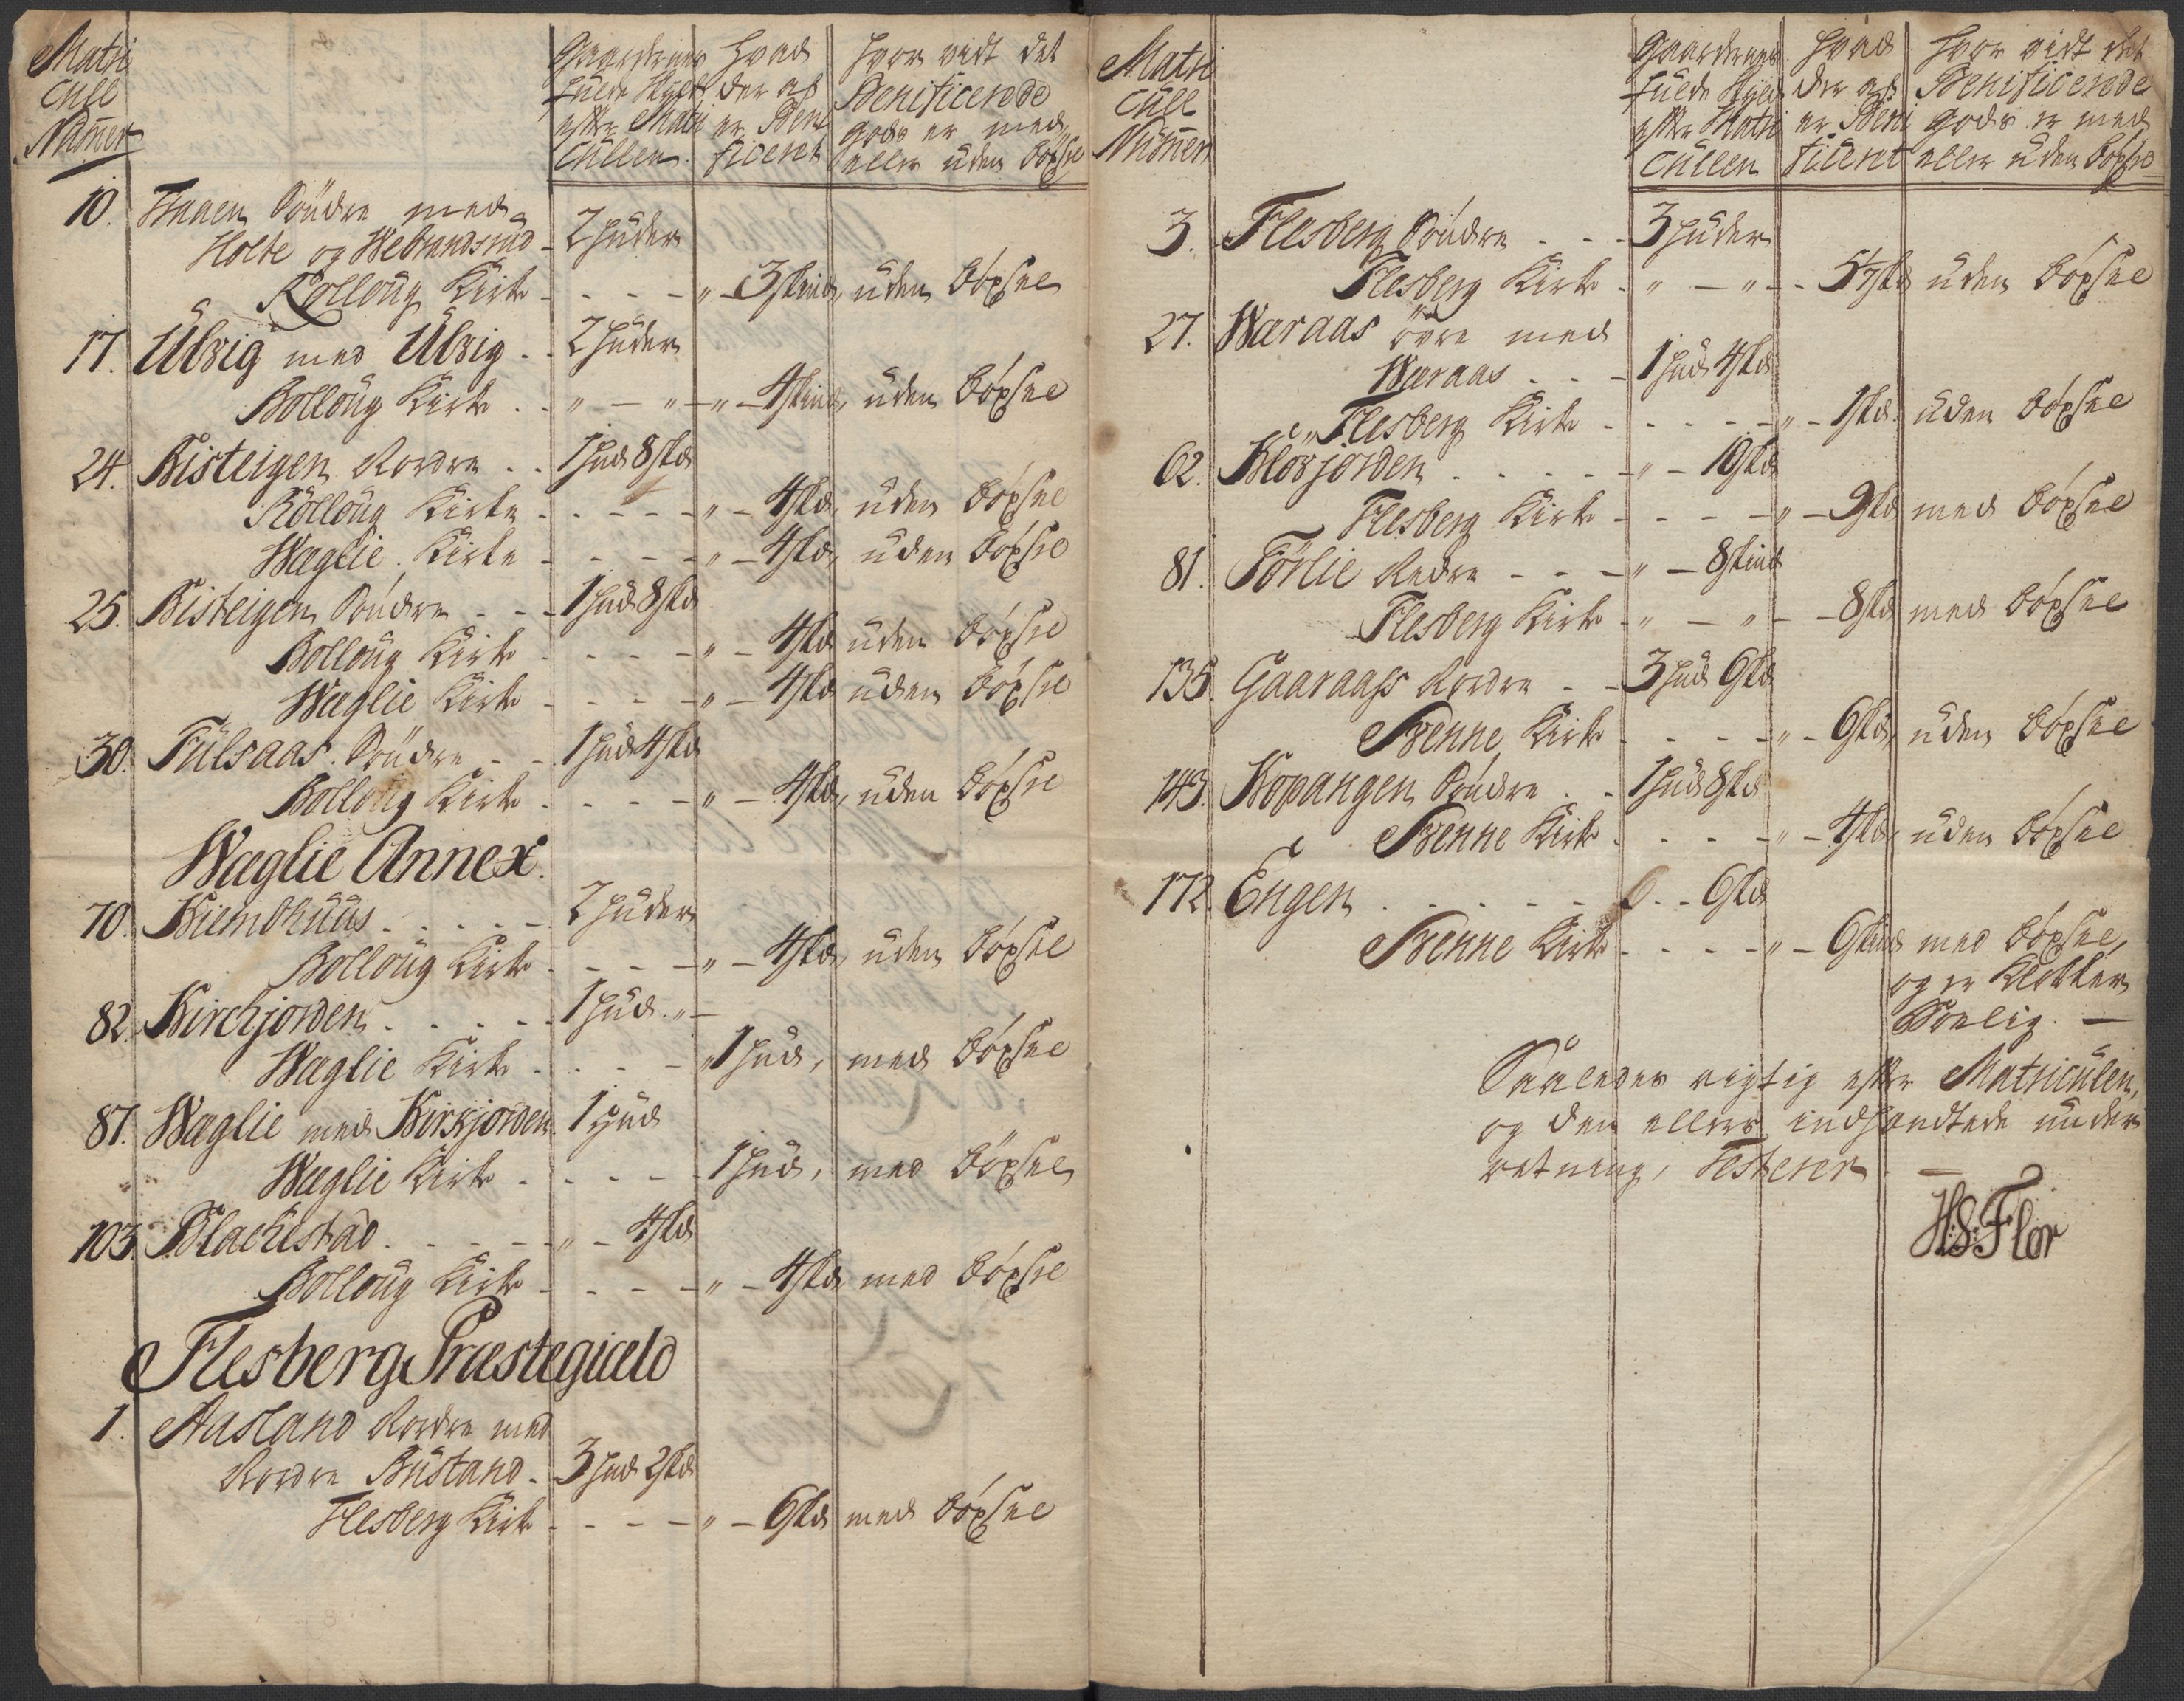 Matri
Cull
Numer
Gaardernes
fulde Skyld
efter Matri
Cullen
Hvad
der af
er Beni
ficert
Hvor vidt det
Benificerede
gods er med
eller uden Bøxsel
10. Haaen Søndre med
Holte og Webrandsrud - 2 Huder
Rolloug Kirke - - - - " - 3 skind, uden Bøxsel
17. Ulvig med Ulvig - - 2 Huder
Rolloug Kirke - - " - " - " - 4 skind, uden Bøxsel
24. Bisteigen Nordre - - 1 Hud 8 skd
Rolloug Kirke - - - - - " - 4 skd, uden Bøxsel
Weglie Kirke - - - - " - 4 skd, uden Bøxsel
25. Bisteigen Søndre - - - 1 Hud 8 skd
Rolloug Kirke - - - - " - 4 skd uden Bøxsel
Weglie Kirke - - - - " - 4 skd uden Bøxsel
30. Fulsaas Søndre - - 1 Hud 4 skd
Rolloug Kirke - - - - " - 4 skd, uden Bøxsel
Weglie Annex.
70. Kiemhuus - - - - - 2 Huder
Rolloug Kirke - - - - " - 4 skd, uden Bøxsel
82. Kirchjorden - - - - - 1 Hud - " -
Weglie Kirke - - - - " 1 Hud, med Bøxsel
87. Weglie med Kirkjorden 1 Hud
Weglie Kirke - - - - - 1 Hud, med Bøxsel
103. Blachestad - - - - - " - 4 skd
Rolloug Kirke - - - - " - 4 skd, med Bøxsel
Flesberg Præstegield
1. Aasland Nordre med
Nordre Bustand - 3 Hud 2 skd
Flesberg Kirke - - - - " - 6 skd med Bøxsel
Matri
Cull
Numer
Gaardernes
fulde Skyld
efter Matri
Cullen
Hvad
der af
er Beni
ficert
Hvor vidt det
Benificerede
gods er med
eller uden Bøxsel
3. Flesberg Søndre - - - 3 Huder
Flesberg Kirke - " - " - - 5 1/7 skd uden Bøxsel
27. Wæraas øvre med
Wæraas - - - 1 Hud 4 skd
Flesberg Kirke - - - - - " - 1 skd. uden Bøxsel
62. Klovjorden - - - - - " - 10 skd
Flesberg Kirke - - - - " - 9 skd med Bøxsel
81. Førlie Nedre - - - " - 8 skind
Flesberg Kirke - " - " - - 8 skd med Bøxsel
135. Gaaraass Nordre - - 3 Hud 6 skd
Svenne Kirke - - - - " - 6 skd, uden Bøxsel
143. Kopangen Søndre - - 1 Hud 8 skd
Svenne Kirke - - - - " - 4 skd, uden Bøxsel
172. Engen - - - - - - - 6 skd
Svenne Kirke - - - - " - 6 skind med Bøxsel,
og er Klokker
Boelig. -
Saaledes rigtig efter Matriculen,
og den ellers indhændtede under
retning, Testerer -
H:S: Flor